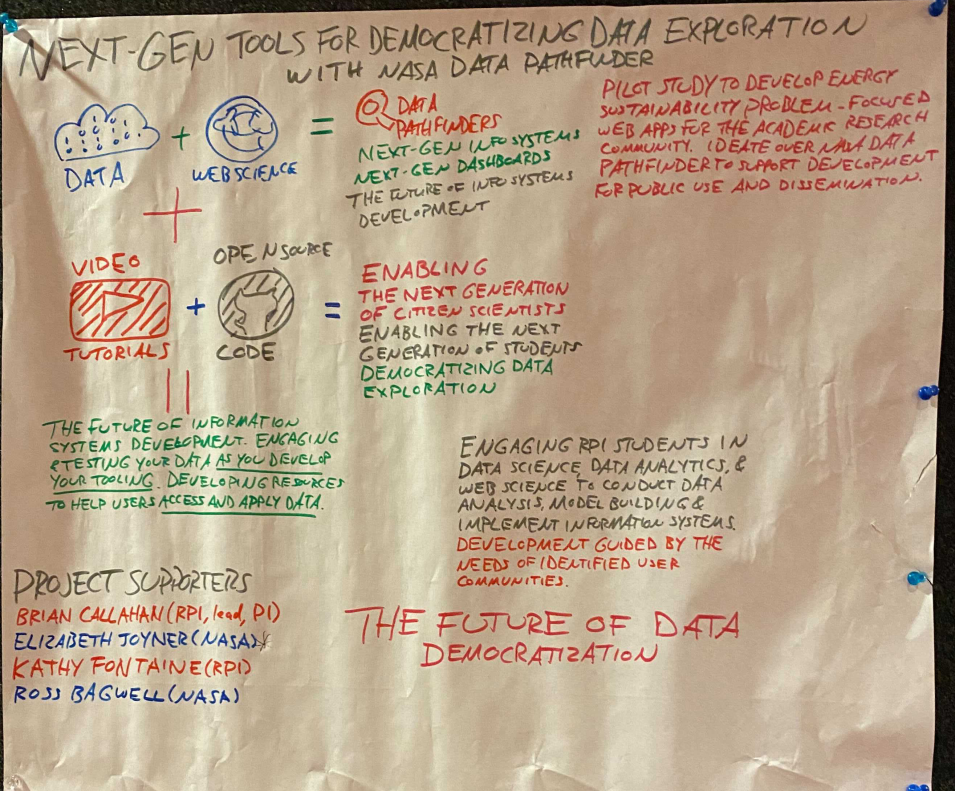 NEXT-GEN TOOLS FOR DEMOCRATIZING DATA EXPLORATION
WITH NASA DATA PATHFINDER
DATA
+
WEBSCIENCE
=
DATA
PATHFINDERS
NEXT-GEN INFO SYSTEMS
NEXT-GEN DASHBOARDS
THE FUTURE OF INFO SYSTEMS
DEVELOPMENT
PILOT STUDY TO DEVELOP ENERGY
SUSTAINABILITY PROBLEM-FOCUSED
WEB APPS FOR THE ACADEMIC RESEARCH
COMMUNITY. IDEATE OVER NASA DATA
PATHFINDER TO SUPPORT DEVELOPMENT
FOR PUBLIC USE AND DISSEMINATION.
+
VIDEO
TUTORIALS
+
OPEN SOURCE
CODE
=
ENABLING
THE NEXT GENERATION
OF CITIZEN SCIENTISTS
ENABLING THE NEXT
GENERATION OF STUDENTS
DEMOCRATIZING DATA
EXPLORATION
||
THE FUTURE OF INFORMATION
SYSTEMS DEVELOPMENT. ENGAGING
& TESTING YOUR DATA AS YOU DEVELOP
YOUR TOOLING. DEVELOPING RESOURCES
TO HELP USERS ACCESS AND APPLY DATA.
ENGAGING RPI STUDENTS IN
DATA SCIENCE, DATA ANALYTICS, &
WEB SCIENCE TO CONDUCT DATA
ANALYSIS, MODEL BUILDING &
IMPLEMENT INFORMATION SYSTEMS.
DEVELOPMENT GUIDED BY THE
NEEDS OF IDENTIFIED USER
COMMUNITIES.
PROJECT SUPPORTERS
BRIAN CALLAHAN (RPI, lead, PI)
ELIZABETH JOYNER (NASA)
KATHY FONTAINE (RPI)
ROSS BAGWELL (NASA)
THE FUTURE OF DATA
DEMOCRATIZATION